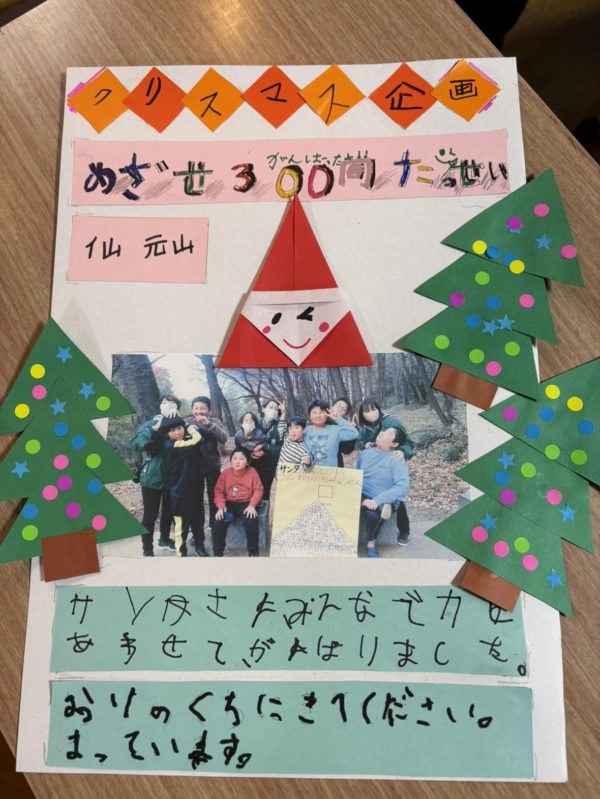 クリスマス企画
がんばったぜ!!
めざせ300問たっせい
仙元山
サンタ
サンタさんみんなで力を
あわせてがんばりました。
おりのくちにきてください。
まっています。